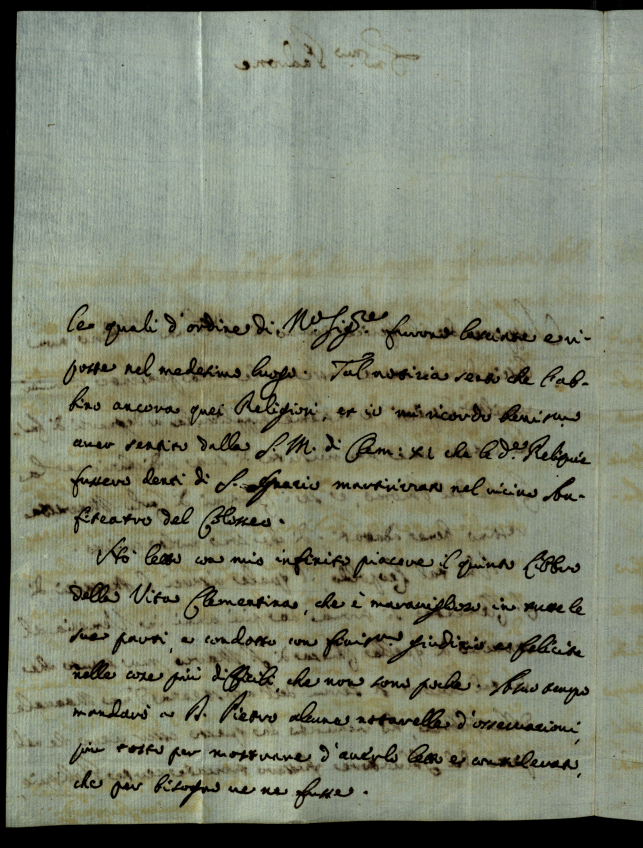 le quali d'ordine di N.º Sig.re furono lasciate e ri-
poste nel medesimo luogo. Tal notizia sento che l'ab-
bino ancora quei Religiosi, et io mi ricordo beniss.º
aver sentito dalla S. M. di Clem: XI che le d.e Reliquie
fussero denti di S. Ignazio martirizzato nel vicino An-
fiteatro del Colosseo.
Hò letto con mio infinito piacere il quinto Libbro
della Vita Clementina, che è maravigliosa in tutte le
sue parti, e condotta con finiss.º giudizio et felicità
nelle cose più difficili, che non sono poche. A suo tempo
mandarò a D. Pietro alcune notarelle d'osservazioni,
più tosto per mostrare d'averlo letto e
che per bisogno ve ne fusse.